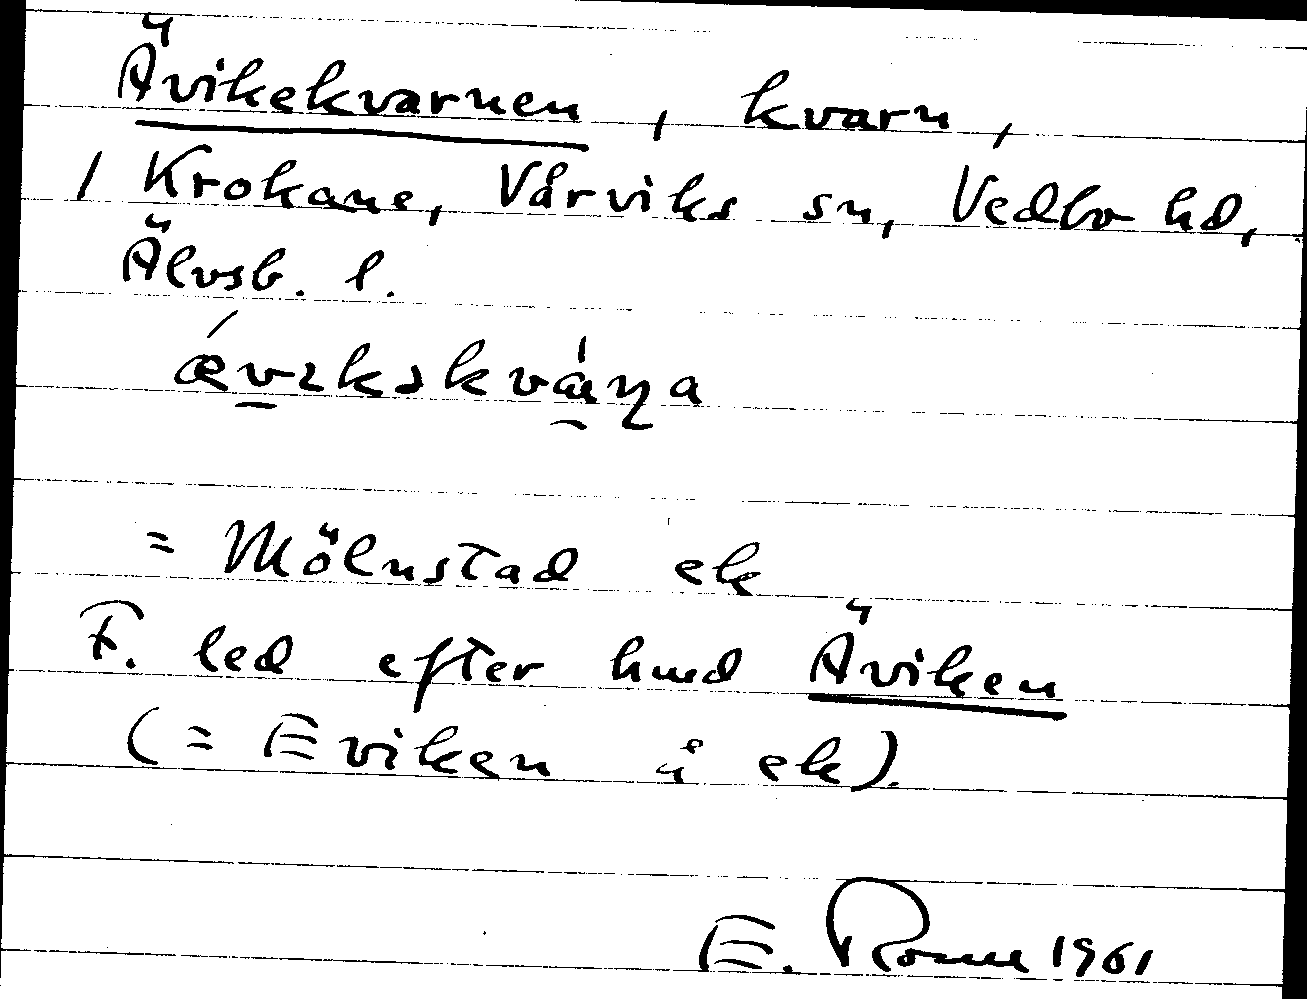 Ävikekvarnen, kvarn,
/ Krokane, Vårviks sn, Vedbo hd,
Älvsb. l.
= Mölnstad ek
F. led efter hmd Äviken
(= Eviken å ek).
E. 1961